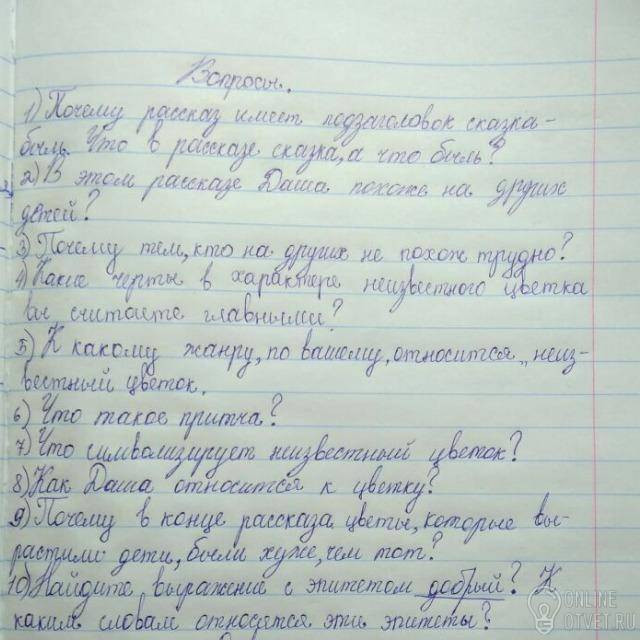 Вопросы.
1) Почему рассказ имеет подзаголовок сказка-
быль. Что в рассказе сказка, а что быль?
2) В этом рассказе Даша похожа на других
детей?
3) Почему тем, кто на других не похож трудно?
4) Какие черты в характере неизвестного цветка
вы считаете главными?
5) К какому жанру, по вашему, относится „неиз-
вестный цветок.
6) Что такое притча?
7) Что символизирует неизвестный цветок?
8) Как Даша относится к цветку?
9) Почему в конце рассказа цветы, которые вы-
растили дети, были хуже, чем тот?
10) Найдите выражение с эпитетом добрый? К
каким словам относятся эти эпитеты?
ONLINE
OTVET.RU